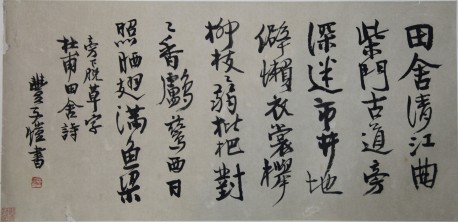 田舍清江曲
柴門古道旁
深迷市井地
僻懶衣裳櫸
柳枝〻弱枇杷對
〻香鸕鶿西日
照晒翅滿魚梁
旁下脫草字
杜甫田舍詩
豐子愷書